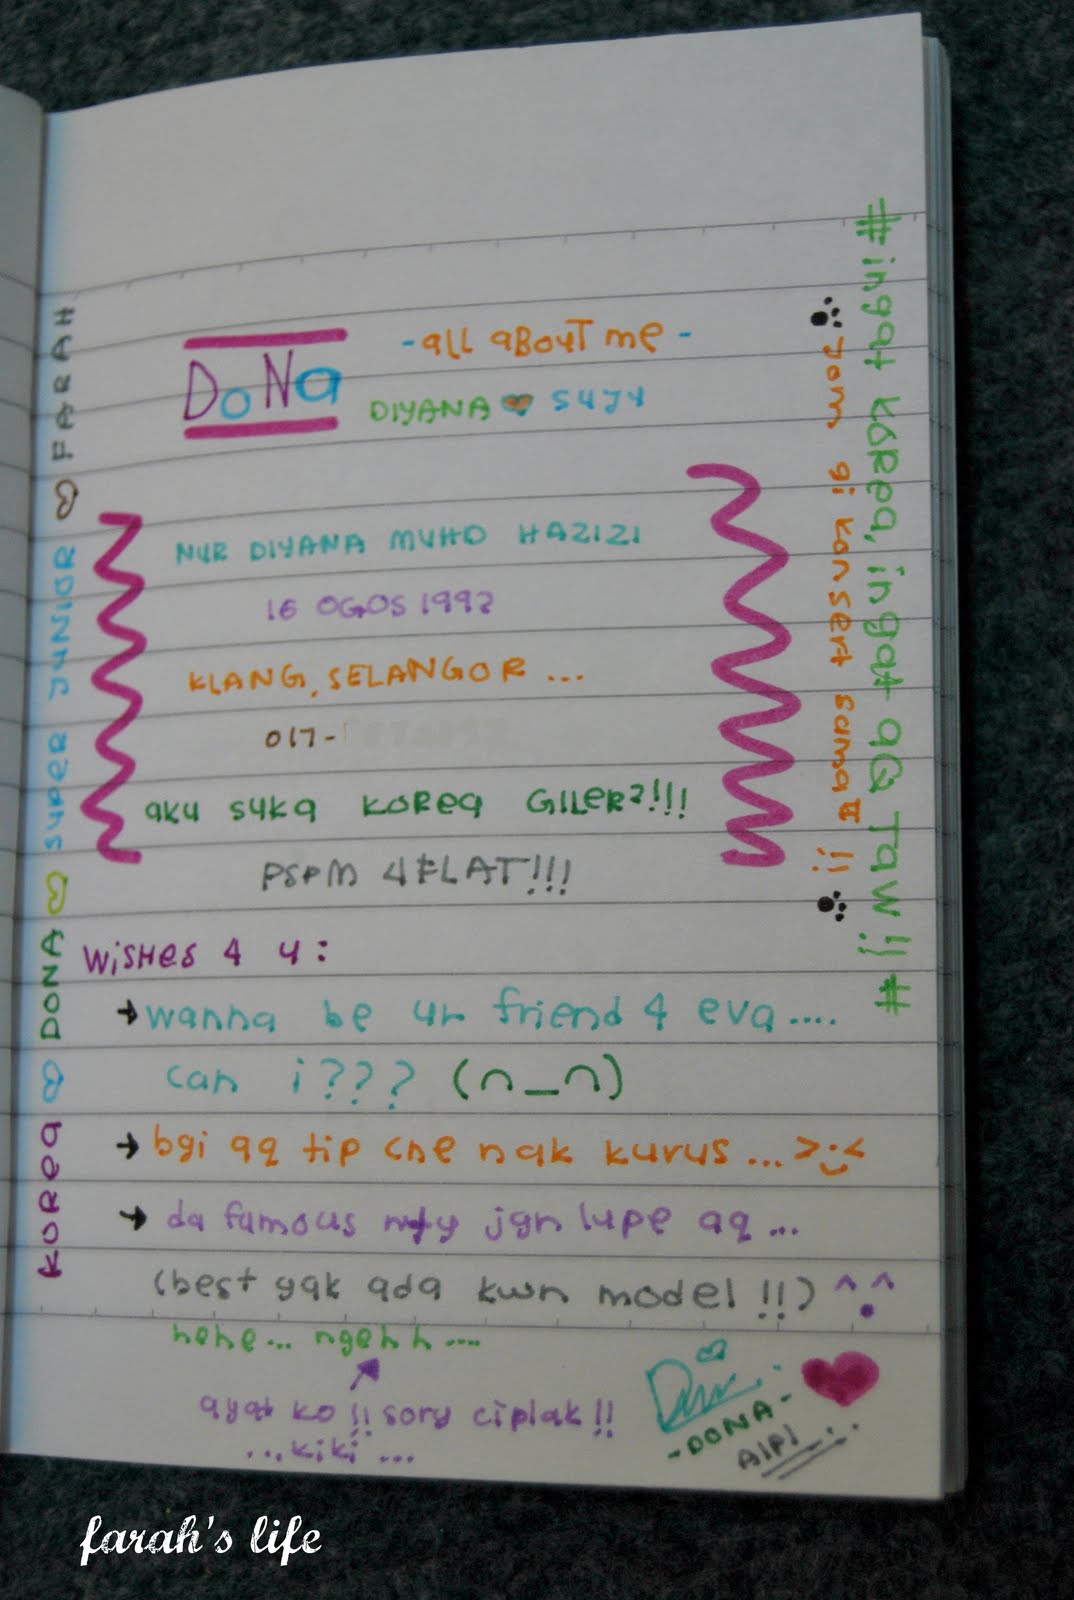 DoNa
-all about me-
DIYANA ♥ SUJU
NUR DIYANA MUHD HAZIZI
16 OGOS 1992
KLANG, SELANGOR ...
017-
aku suka KOREA GILER2!!!
PSPM 4 FLAT!!!
WISHES 4 U :
→ wanna be ur friend 4 eva....
can i??? (n_n)
→ bgi aq tip cne nak kurus ... >:<
→ da famous jgn lupe aq ...
(best gak ada kwn model !!) ^.^
hehe... ngehh ....
ayat ko !! sory ciplak !!
...kiki ...
-DONA-
AIPI
KOREA ♡ DONA ♡ SUPER JUNIOR ♡ FARAH
JOM gi konsert sama II !!
#ingat KOREA, ingat aQ TAW !! #
farah's life